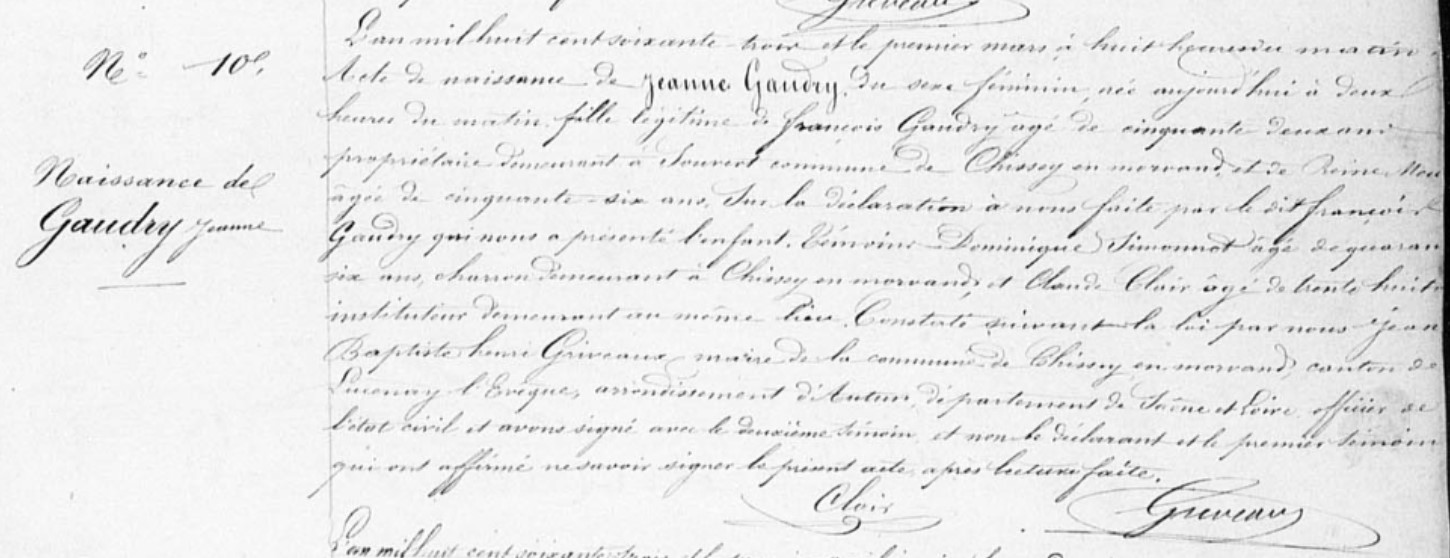 Griveaux
N° 10.
Naissance de
Gaudry Jeanne
L'an mil huit cent soixante trois et le premier mars, à huit heures du matin.
Acte de naissance de Jeanne Gaudry, du sexe féminin, née aujourd'hui à deux
heures du matin, fille légitime de françois Gaudry agé de cinquante deux ans
propriétaire demeurant à Souvert commune de Chissey en morvand, et de Reine
âgée de cinquante-six ans, Sur la déclaration à nous faite par le dit françois
Gaudry qui nous a présenté l'enfant. Témoins Dominique Simonnot âgé de quaran
six ans, charron demeurant à Chissey en morvand, et Claude Clair âgé de trente huit
instituteur demeurant au même lieu. Constaté suivant la loi par nous Jean
Baptiste henri Griveaux, maire de la commune de Chissey en morvand, canton de
Lucenay l'Evêque, arrondissement d'Autun, département de Saône et Loire, officier de
l'état civil et avons signé avec le deuxième témoin, et non le déclarant et le premier témoin
qui ont affirmé ne savoir signer le présent acte, après lecture faite.
Clair Griveaux
L'an mil huit cent soixante trois et le